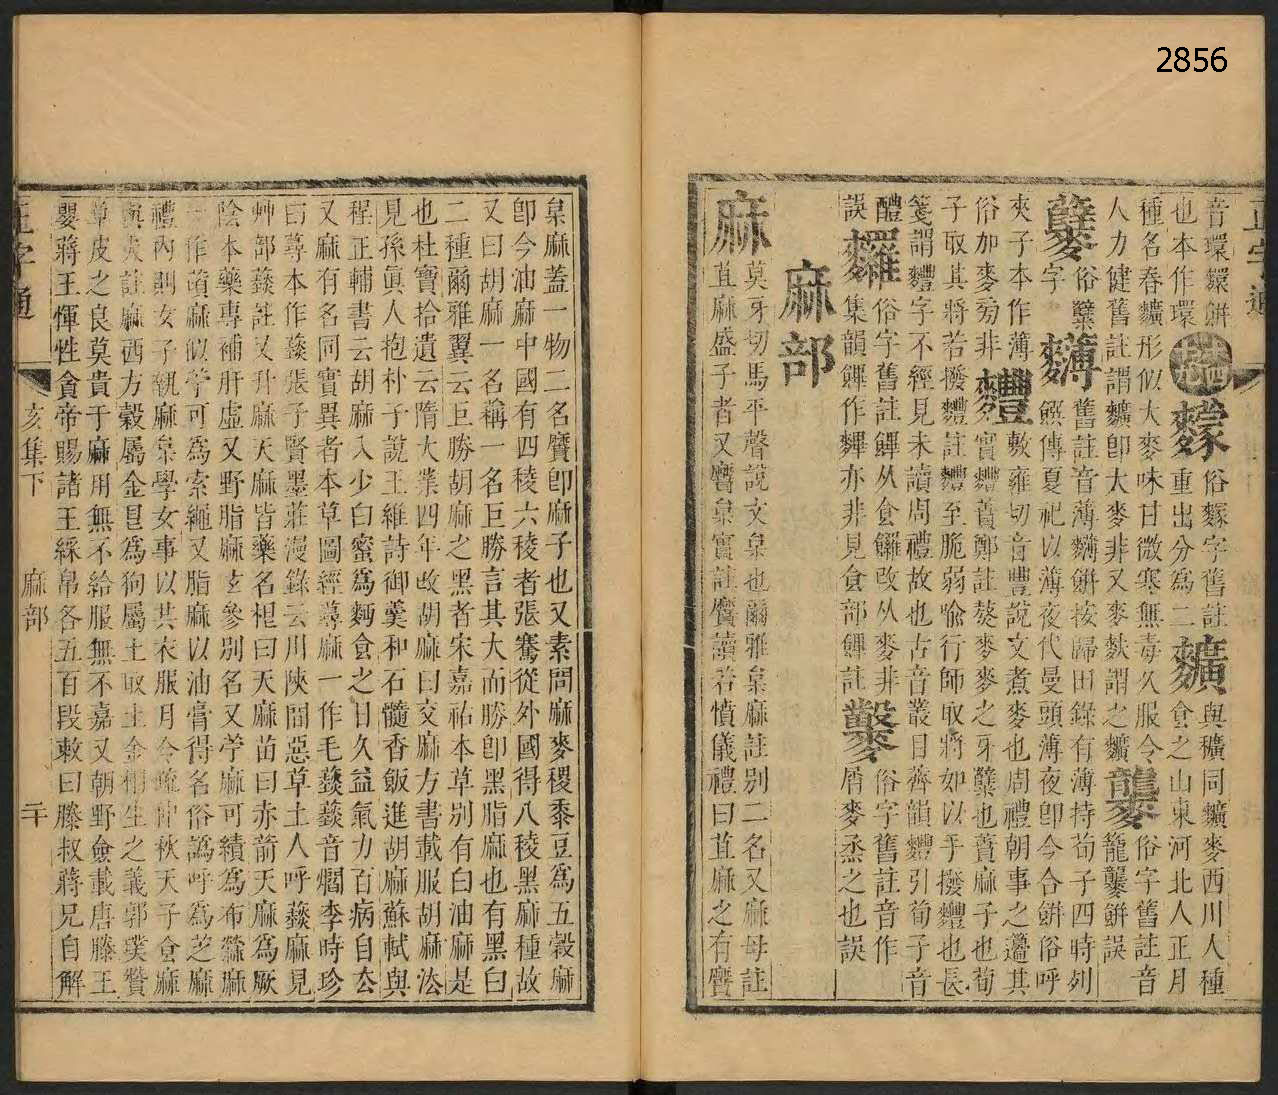 2856
正字通
音環䴉餅也本作環
䝉俗䝉字舊註重出分爲二
穬與穬同穬麥西川人種
種名春穬形似大麥味甘微寒無毒久服令
人力健舊註謂穬卽大麥非又麥麩謂之穬
俗字舊註音籠龑餅誤
俗糱字
舊註音薄餅按歸田錄有薄持荀子四時列
饌傳夏祀以薄夜代曼頭薄夜卽今合餅俗呼
夾子本作薄
敷雍切音豐說文煮麥也周禮朝事之籩其
俗加麥旁非
實麷蕡鄭註熬麥麥之牙糱也蕡麻子也荀
子取其將若撥麷註麷至脆弱喩行師取將如以手撥麷也長
箋謂麷字不經見未讀周禮故也古音叢目齊韻麷引荀子音
醴
俗字舊註
从食饠改从麥非
俗字舊註音作
誤
集韻
亦非見食部
註
屑麥烝之也誤
麻部
麻
莫牙切馬平聲說文枲也爾雅枲麻註別二名又麻母註
苴麻盛子者又黂枲實註黂讀若憤儀禮曰苴麻之有黂
枲麻蓋一物二名黂卽麻子也又素問麻麥稷黍豆爲五穀麻
卽今油麻中國有四稜六稜者張騫從外國得八稜黑麻種故
又曰胡麻一名藊一名巨勝言其大而勝卽黑脂麻也有黑白
二種爾雅翼云巨勝胡麻之黑者宋嘉祐本草別有白油麻是
也杜寶拾遺云隋大業四年改胡麻曰交麻方書載服胡麻法
見孫眞人抱朴子說王維詩御羹和石髓香飯進胡麻蘇軾與
程正輔書云胡麻入少白蜜爲麪食之日久益氣力百病自去
又麻有名同實異者本草圖經蕁麻一作毛蕿蕿音燜李時珍
曰蕁本作蕿張子賢墨莊漫錄云川陝間惡草土人呼蕿麻見
艸部蕿註又升麻天麻皆藥名根曰天麻苗曰赤箭天麻爲厥
陰本藥專補肝虛又野脂麻玄參別名又苧麻可績爲布檾麻
一作䔛麻似苧可爲索繩又脂麻以油膏得名俗譌呼爲芝麻
禮內則女子執麻枲學女事以共衣服月令孟仲秋天子食麻
與犬註麻西方穀屬金㠯爲狗屬土取土金相生之義郭璞贊
草皮之良莫貴于麻用無不給服無不嘉又朝野僉載唐滕王
嬰蔣王惲性貪帝賜諸王綵帛各五百段敕曰滕叔蔣兄自解
正字通
亥集下
麻部
二十